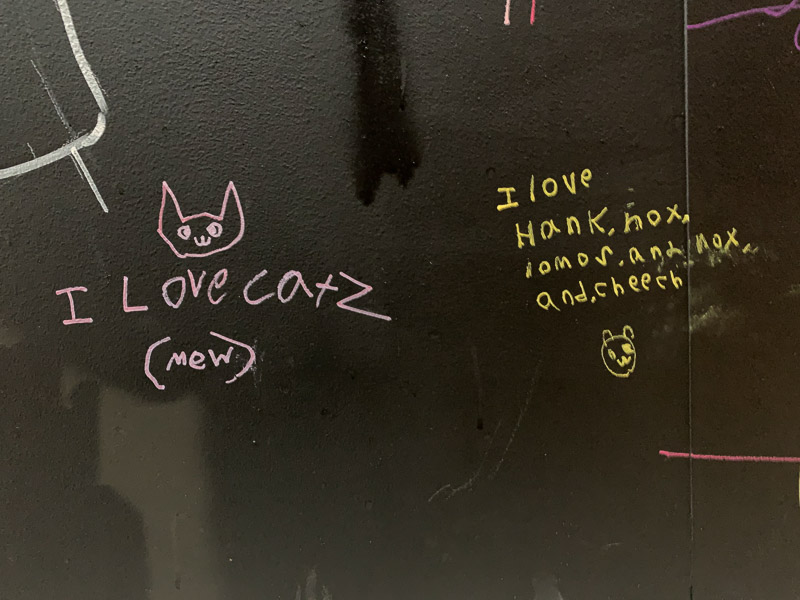 I Love catz
(mew)
I love
Hank, nox,
and, nox,
and, cheech